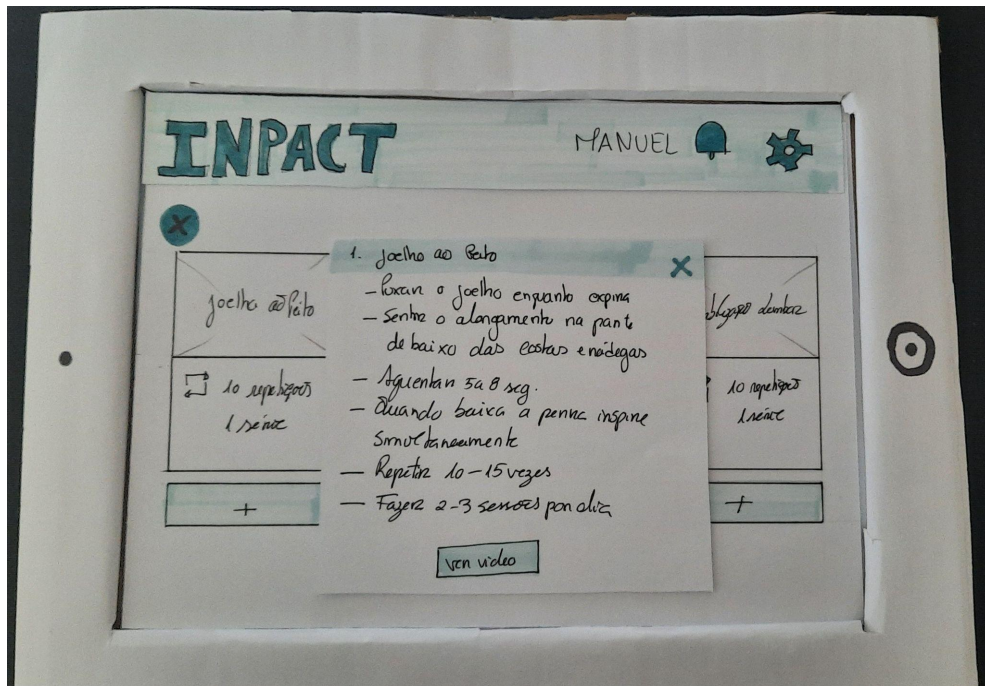 INPACT
MANUEL
X
Joelho ao Peito
10 repetições
1 série
+
1. Joelho ao Peito
X
- Puxar o joelho enquanto expira
- Sentir o alongamento na parte
de baixo das costas e nádegas
- Aguentar 5 a 8 seg.
- Quando baixa a perna inspire
simultaneamente
- Repetir 10-15 vezes
- Fazer 2-3 sessões por dia
ver video
lombar
10 repetições
1 série
+